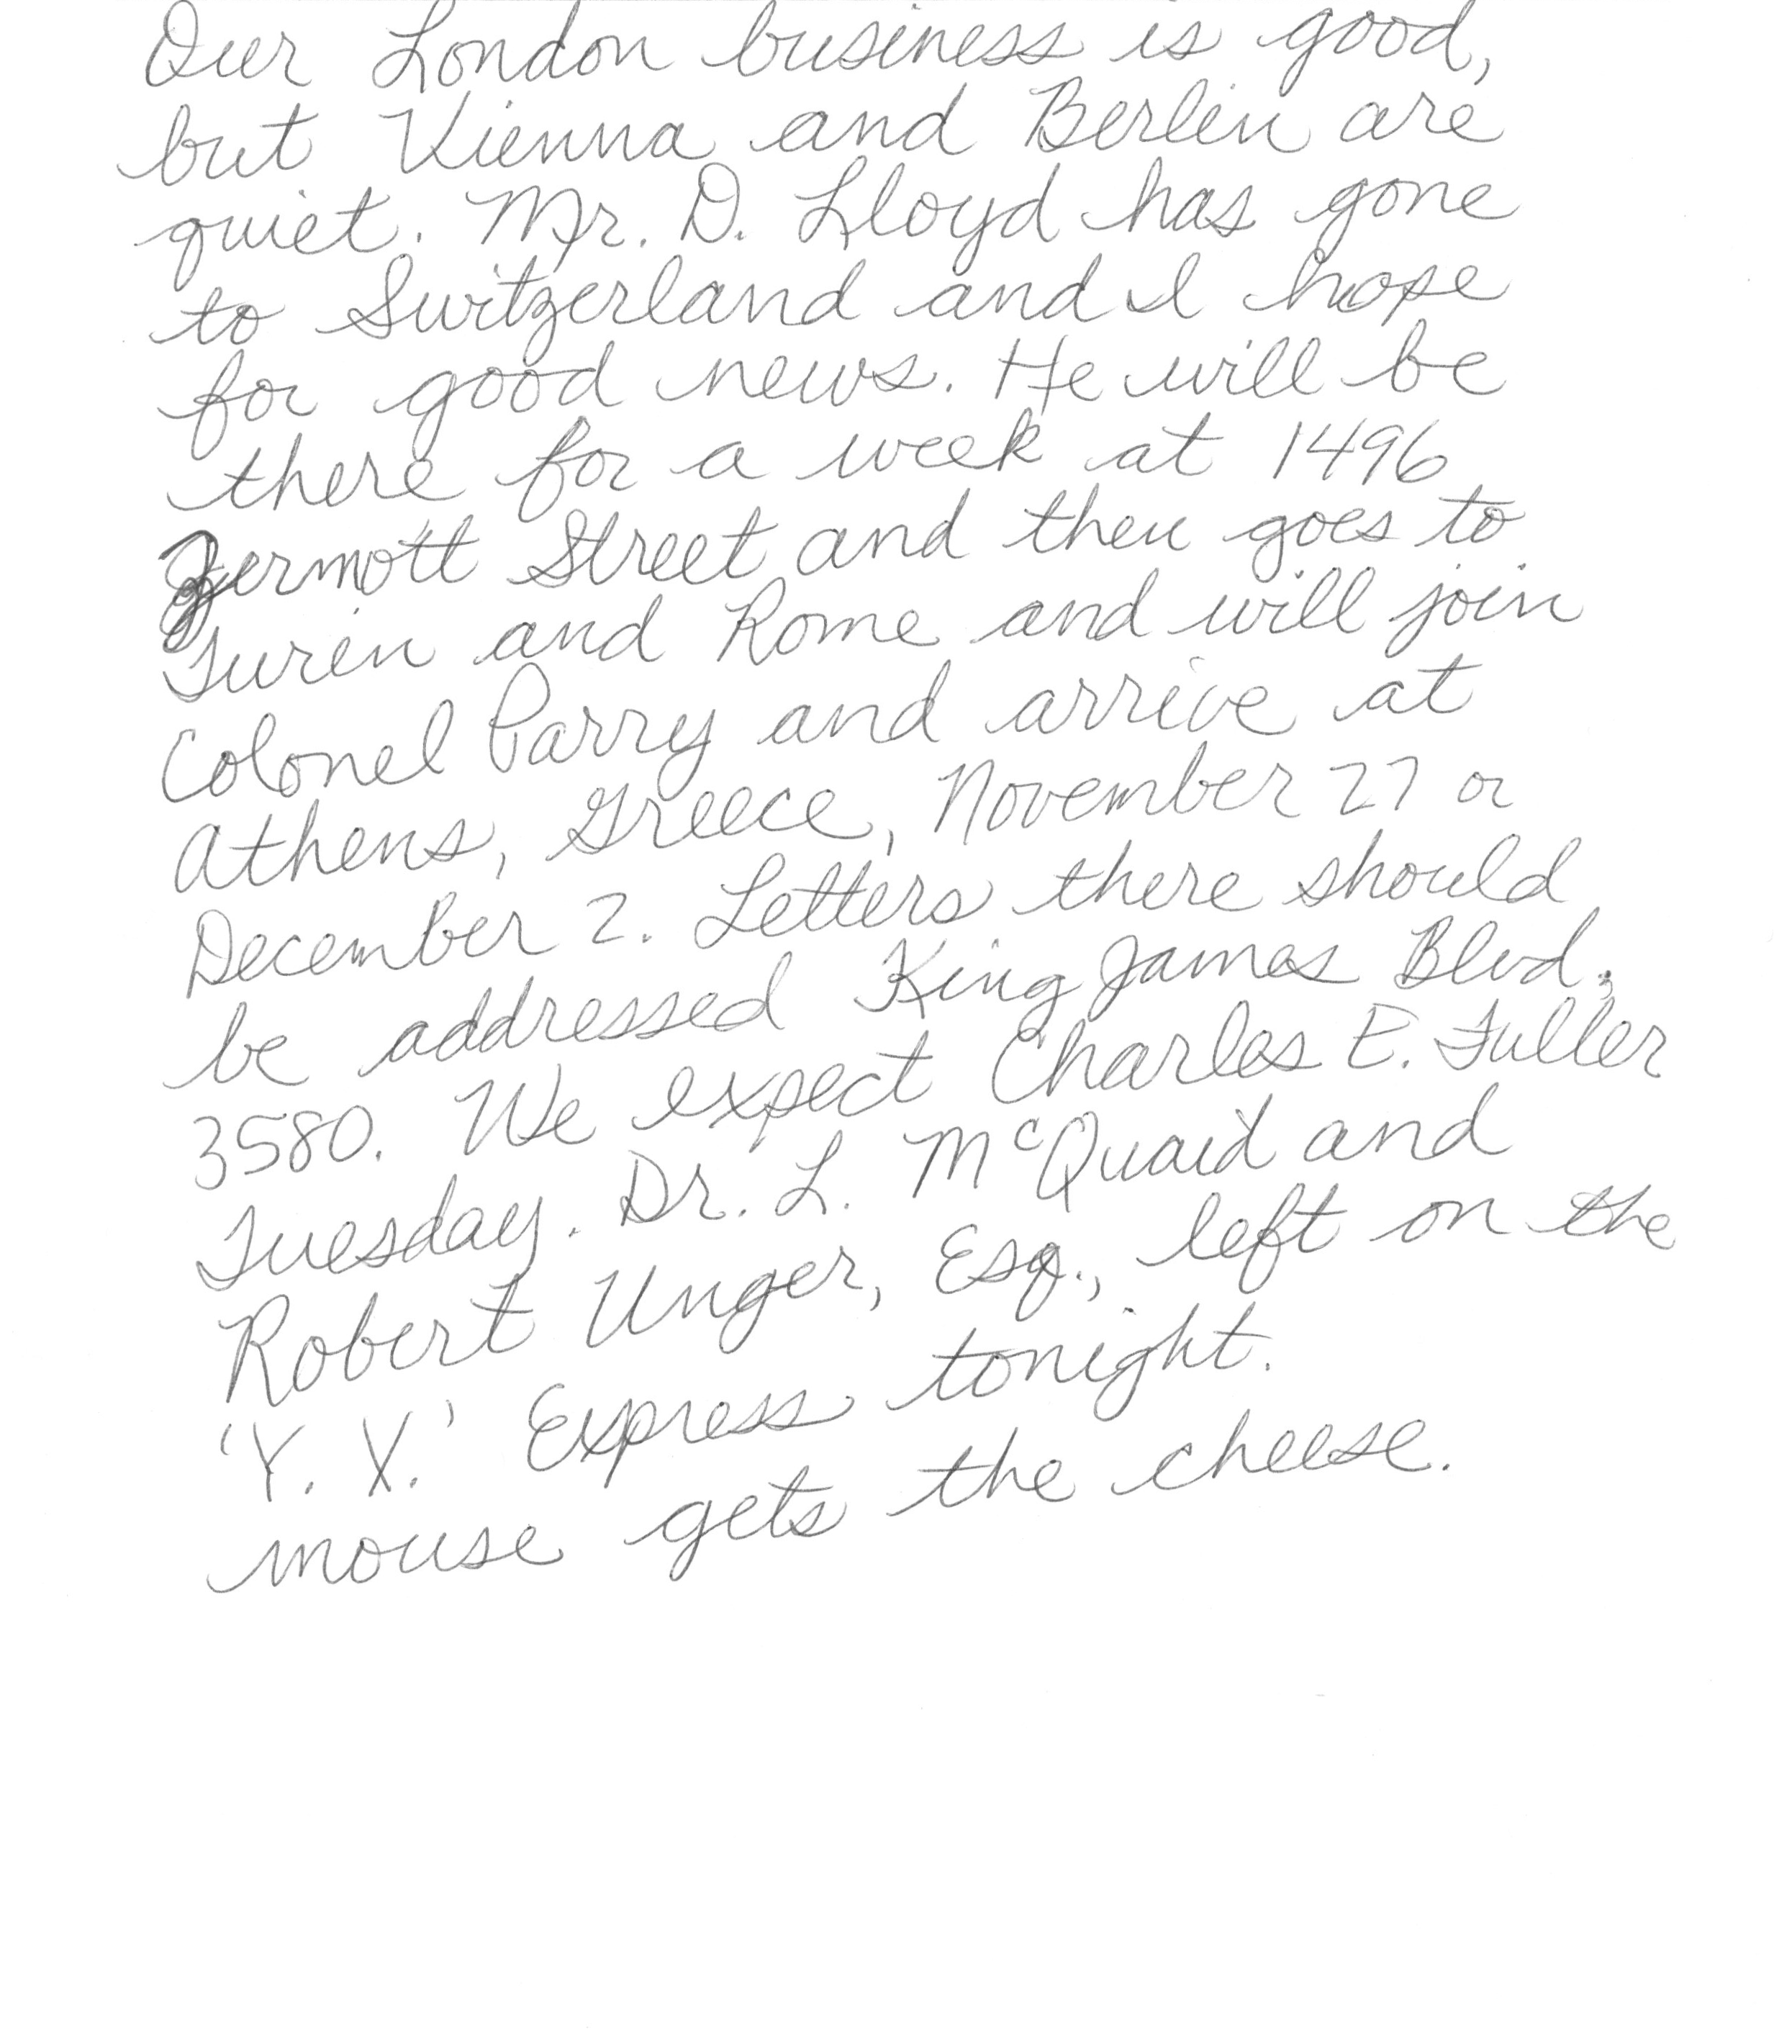 Our London business is good,
but Vienna and Berlin are
quiet. Mr. D. Lloyd has gone
to Switzerland and I hope
for good news. He will be
there for a week at 1496
Zermott Street and then goes to
Turin and Rome and will join
Colonel Parry and arrive at
Athens, Greece, November 27 or
December 2. Letters there should
be addressed King James Blvd.
3580. We expect Charles E. Fuller
Tuesday. Dr. L. McQuaid and
Robert Unger, Esq., left on the
'Y. X.' Express tonight.
mouse gets the cheese.